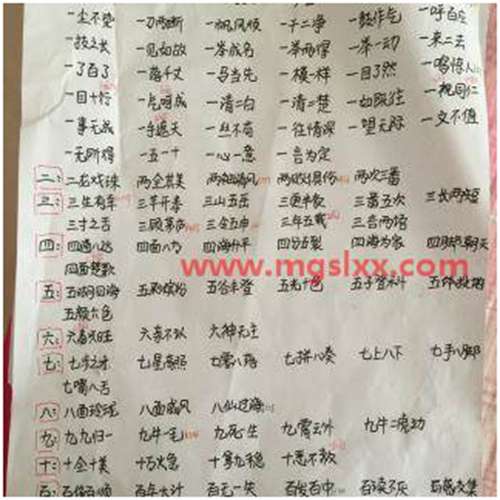 一尘不染 一刀两断 一帆风顺 一干二净 一鼓作气 一呼百应
一技之长 一见如故 一举成名 一举两得 一举一动 一来二去
一了百了 一落千丈 一马当先 一模一样 一目了然 一鸣惊人
一目十行 一气呵成 一清二白 一清二楚 一如既往 一视同仁
一事无成 一手遮天 一丝不苟 一往情深 一望无际 一文不值
一无所得 一五一十 一心一意 一言为定
二: 二龙戏珠 两全其美 两袖清风 两败俱伤 两次三番
三: 三生有幸 三羊开泰 三山五岳 三更半夜 三番五次 三长两短
三寸之舌 三顾茅庐 三令五申 三年五载 三言两语
四: 四通八达 四面八方 四海升平 四分五裂 四海为家 四脚朝天
四面楚歌
www.mgslxx.com
五: 五湖四海 五彩缤纷 五谷丰登 五光十色 五子登科
五颜六色
六: 六畜兴旺 六亲不认 六神无主
七: 七步之才 七星高照 七零八落 七拼八凑 七上八下 七手八脚
七嘴八舌
八: 八面玲珑 八面威风 八仙过海
九: 九九归一 九牛一毛 九死一生 九霄云外 九牛二虎之力
十: 十全十美 十万火急 十拿九稳 十恶不赦
百: 百依百顺 百年大计 百发百中 百读不厌